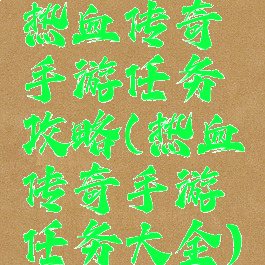 热血传奇
手游任务
攻略(热血
传奇手游
任务大全)